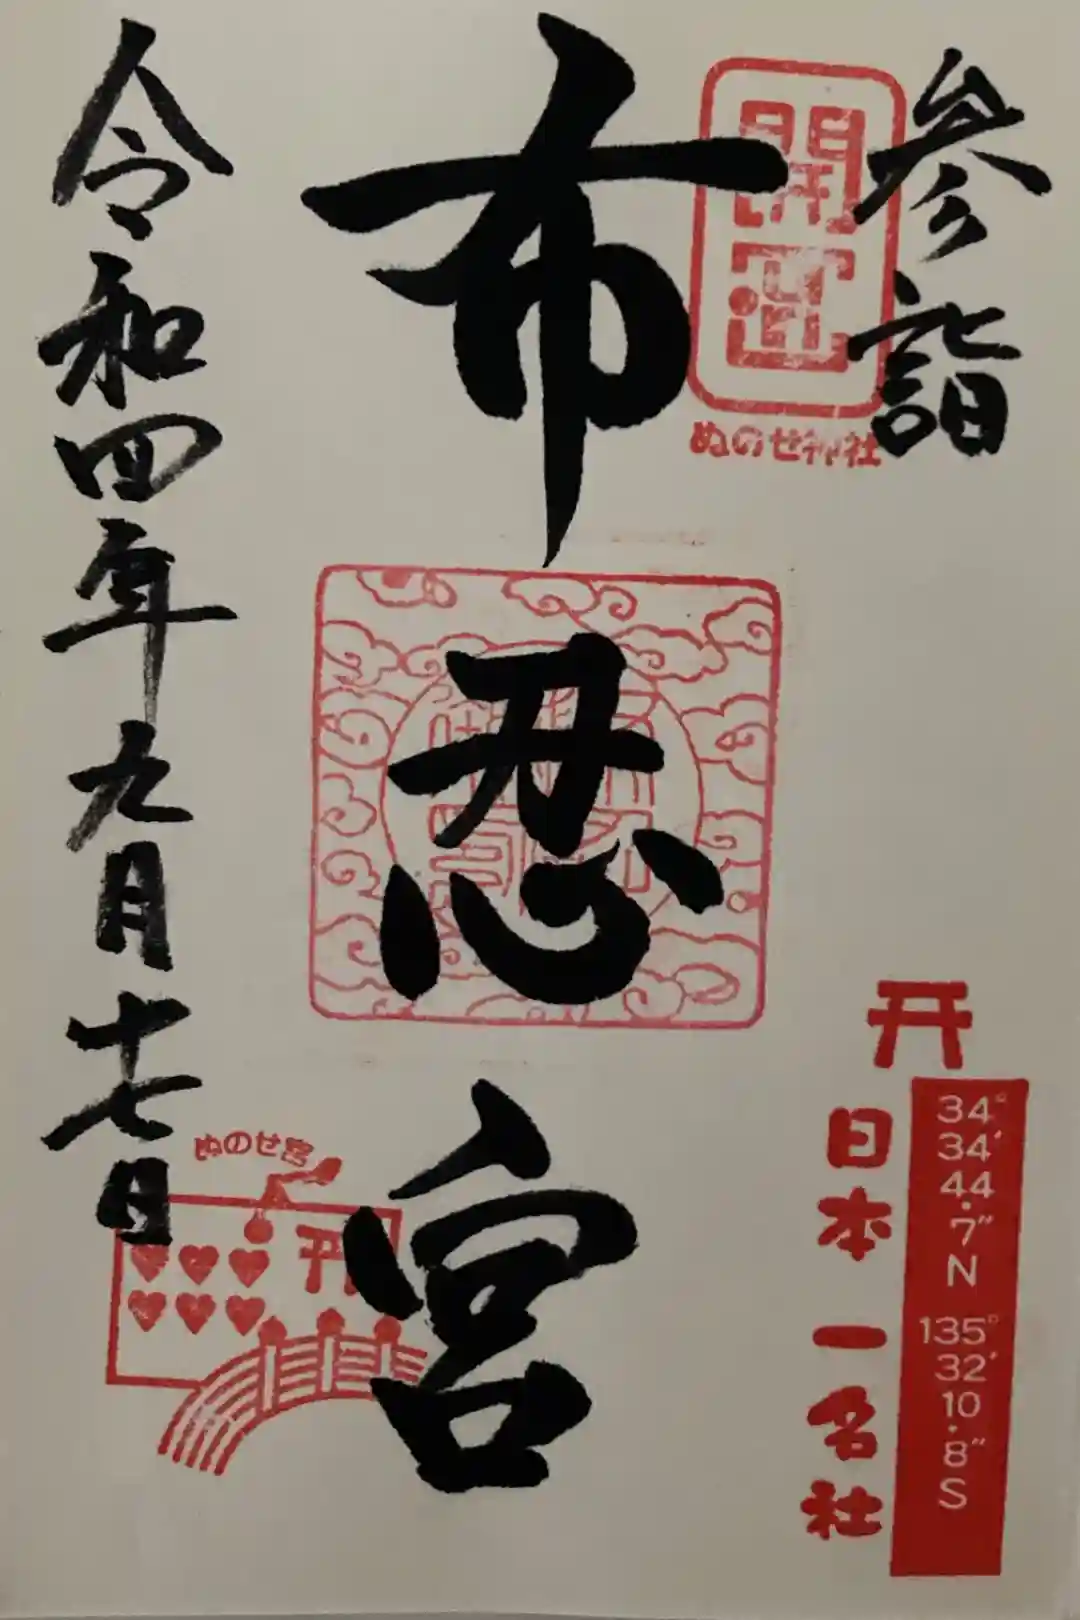 参詣
開運
ぬのせ神社
布忍宮
日本一名社
34°
34′
44
.7″
N
135°
32′
10
.8″
S
令和四年九月十七日
ぬのせ宮